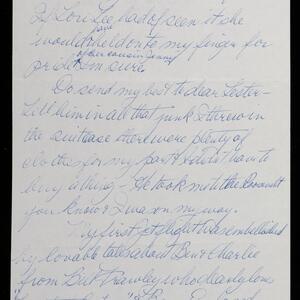 If Lori Lee had of seen it she
would have held onto my finger for
of our cousin Jenny
pride I'm sure.
Do send my best to dear Lester -
tell him in all that junk I threw in
the suitcase there were plenty of
clothes for my part & didn't have to
buy a thing - He took me to the Roosevelt
you know & I was on my way.
My first jet flight was embellished
by lovable tales about Ben & Charlie
from Bill Frawley who dearly loves